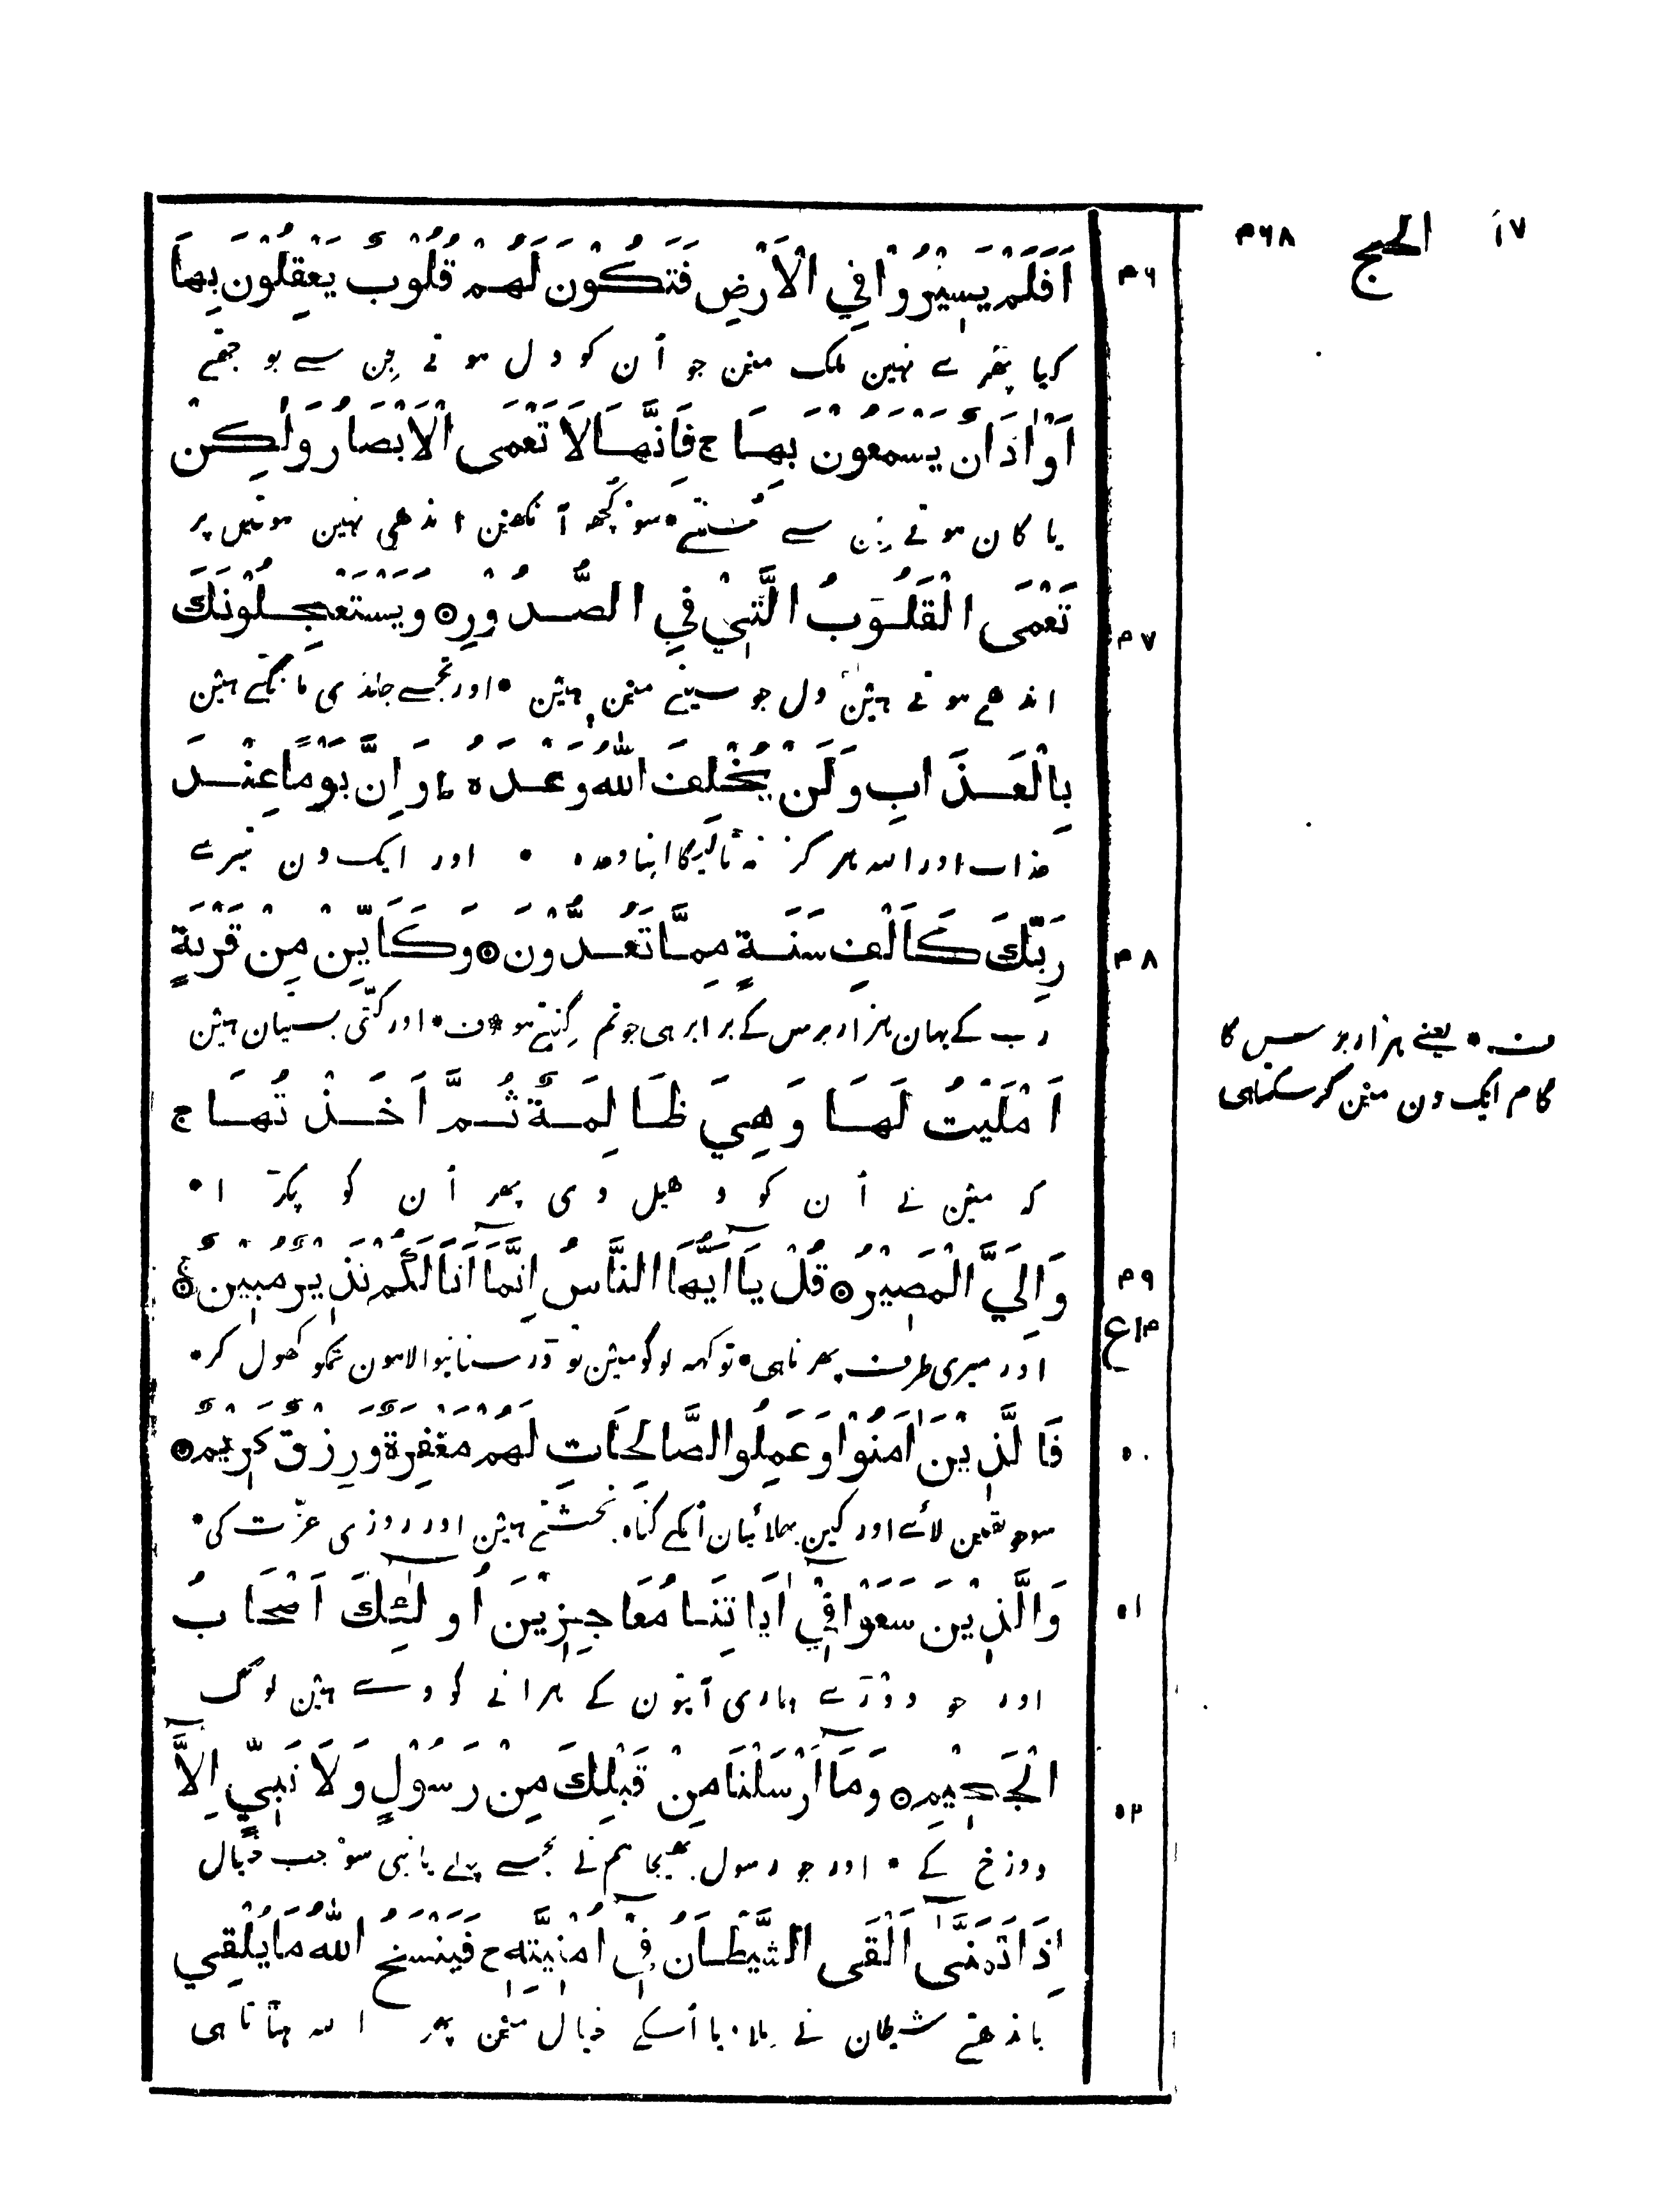 ۱۷ الحج ۴۶۸
۴۶ اَفَلَمْ يَسِيْرُوْا فِي الْاَرْضِ فَتَكُوْنَ لَهُمْ قُلُوْبٌ يَعْقِلُوْنَ بِهَا
کیا پھرے نہین ملک مین جو اُن کو دل ہوتے جِن سے بوجھتے
اَوْ اٰذَانٌ يَسْمَعُوْنَ بِهَا ج فَاِنَّهَا لَا تَعْمَى الْاَبْصَارُ وَلٰكِنْ
یا کان ہوتے جِن سے سُنتے • سو کُچھ آنکھین اندھی نہین ہوتیں پر
تَعْمَى الْقُلُوْبُ الَّتِيْ فِي الصُّدُوْرِ ۝ وَيَسْتَعْجِلُوْنَكَ ۴۷
اندھے ہوتے ہین دل جو سینے مین ہین • اور تجھسے جلدی مانگتے ہین
بِالْعَذَابِ وَلَنْ يُخْلِفَ اللّٰهُ وَعْدَهُ ط وَاِنَّ يَوْمًا عِنْدَ
عذاب اور اللہ ہرگز نہ ٹالیگا اپنا وعدہ • اور ایک دن تیرے
رَبِّكَ كَاَلْفِ سَنَةٍ مِمَّا تَعُدُّوْنَ ۝ وَكَاَيِّنْ مِنْ قَرْيَةٍ ۴۸
رب کے یہان ہزار برس کے برابر ہی جو تم گِنتے ہو * ف • اور کتّی بستیان ہین
ف • یعنے ہزار برس کا
کام ایک دن مین کر سکتا ہی
اَمْلَيْتُ لَهَا وَهِيَ ظَالِمَةٌ ثُمَّ اَخَذْتُهَا ج
کہ مین نے اُن کو ڈھیل دی پھر اُن کو پکڑا •
وَاِلَيَّ الْمَصِيْرُ ۝ قُلْ يَا اَيُّهَا النَّاسُ اِنَّمَا اَنَا لَكُمْ نَذِيْرٌ مُبِيْنٌ ۝ ۴۹
۱۴ ع
اور میری طرف پھر ناہی • تو کہہ لوگو مین تو ڈر سنانیوالا ہون تمکو کھول کر •
فَالَّذِيْنَ اٰمَنُوْا وَعَمِلُوا الصَّالِحَاتِ لَهُمْ مَغْفِرَةٌ وَرِزْقٌ كَرِيْمٌ ۝ ۵۰
سو جو یقین لائے اور کین بھلائیان اُنکے گناہ بخشتے ہین اور روزی عزّت کی •
وَالَّذِيْنَ سَعَوْا فِيْ اٰيَاتِنَا مُعَاجِزِيْنَ اُولٰئِكَ اَصْحَابُ ۵۱
اور جو دوڑے ہماری آیتون کے ہرانے کو وے ہین لوگ
الْجَحِيْمِ ۝ وَمَا اَرْسَلْنَا مِنْ قَبْلِكَ مِنْ رَسُوْلٍ وَلَا نَبِيٍّ اِلَّا ۵۲
دوزخ کے • اور جو رسول بھیجا ہم نے تجھسے پہلے یا نبی سو جب خیال
اِذَا تَمَنَّىٰ اَلْقَى الشَّيْطَانُ فِيْ اُمْنِيَّتِهِ ج فَيَنْسَخُ اللّٰهُ مَا يُلْقِي
باندھنے شیطان نے مِلا دیا اُسکے خیال مین پھر اللہ ہٹاتا ہی